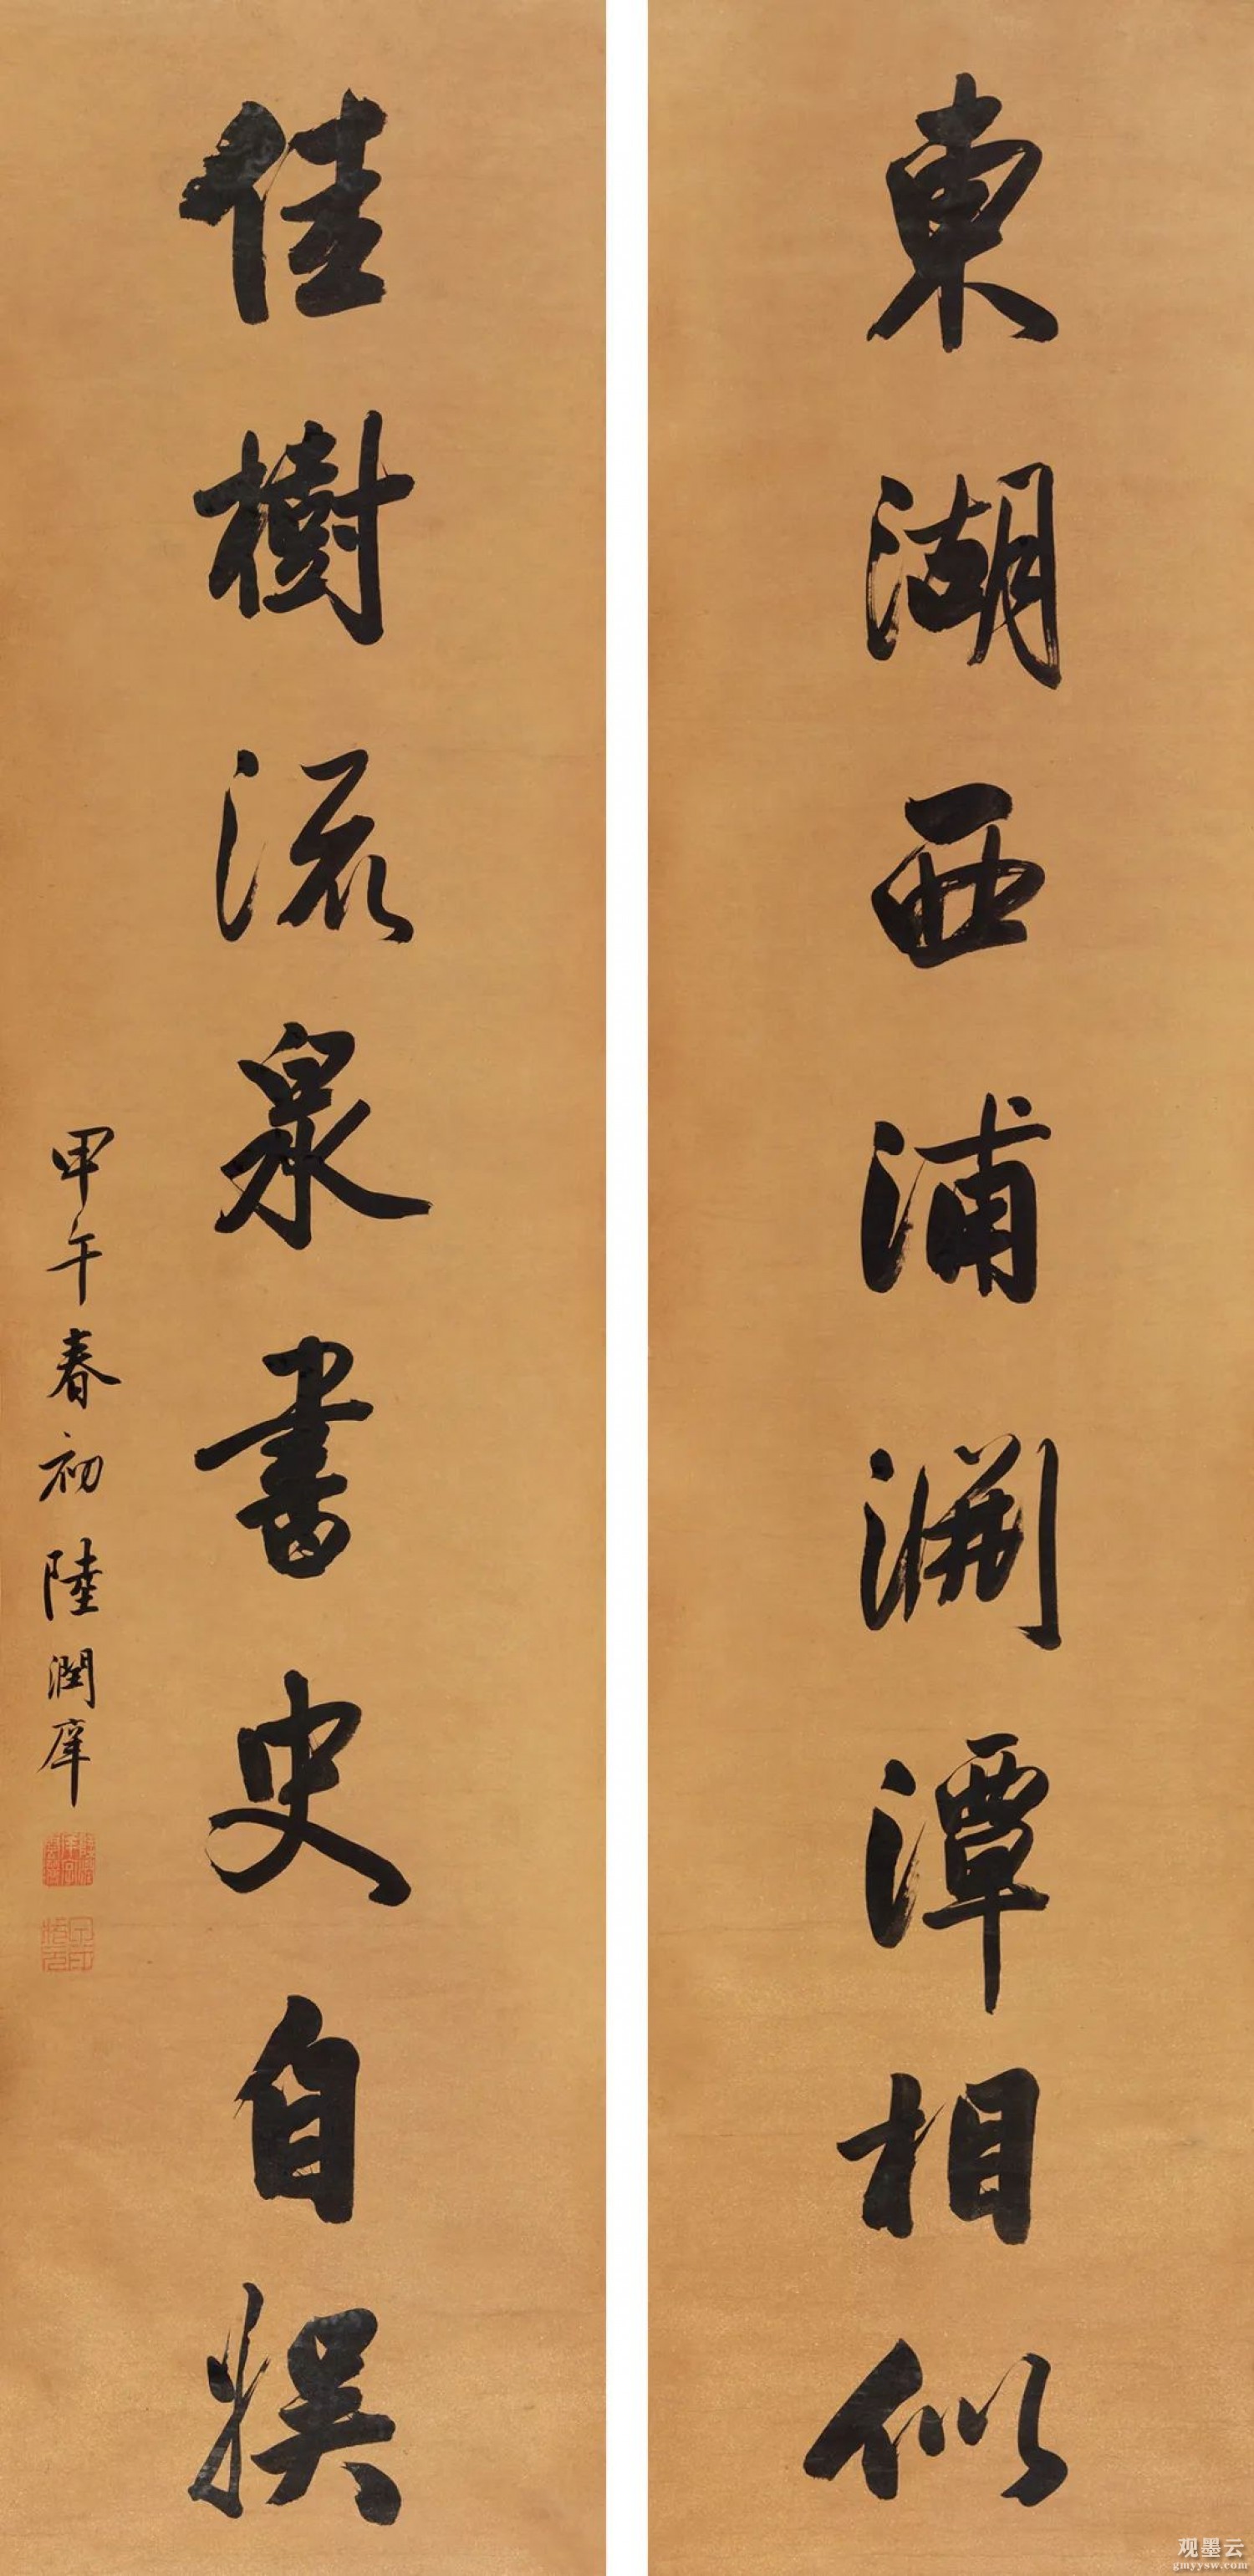 東湖西浦淵潭相似
佳樹流泉書史自娛
甲午春初陸潤庠
观墨云
gmyysw.com